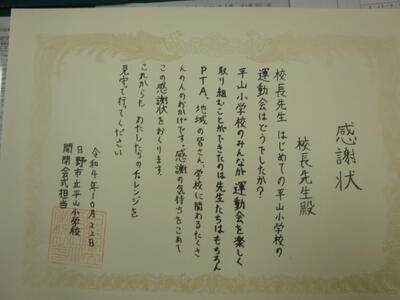 感謝状
校長先生殿
校長先生 はじめての平山小学校の
運動会はどうでしたか？
平山小学校のみんなが運動会を楽しく
取り組むことができたのは先生たちはもちろん
PTA、地域の皆さん、学校に関わるたくさ
んの人のおかげです。感謝の気持ちをこめて
この感謝状をおくります。
これからも わたしたちのチャレンジを
見守って行ってください
令和4年10月22日
日野市立平山小学校
開閉会式担当